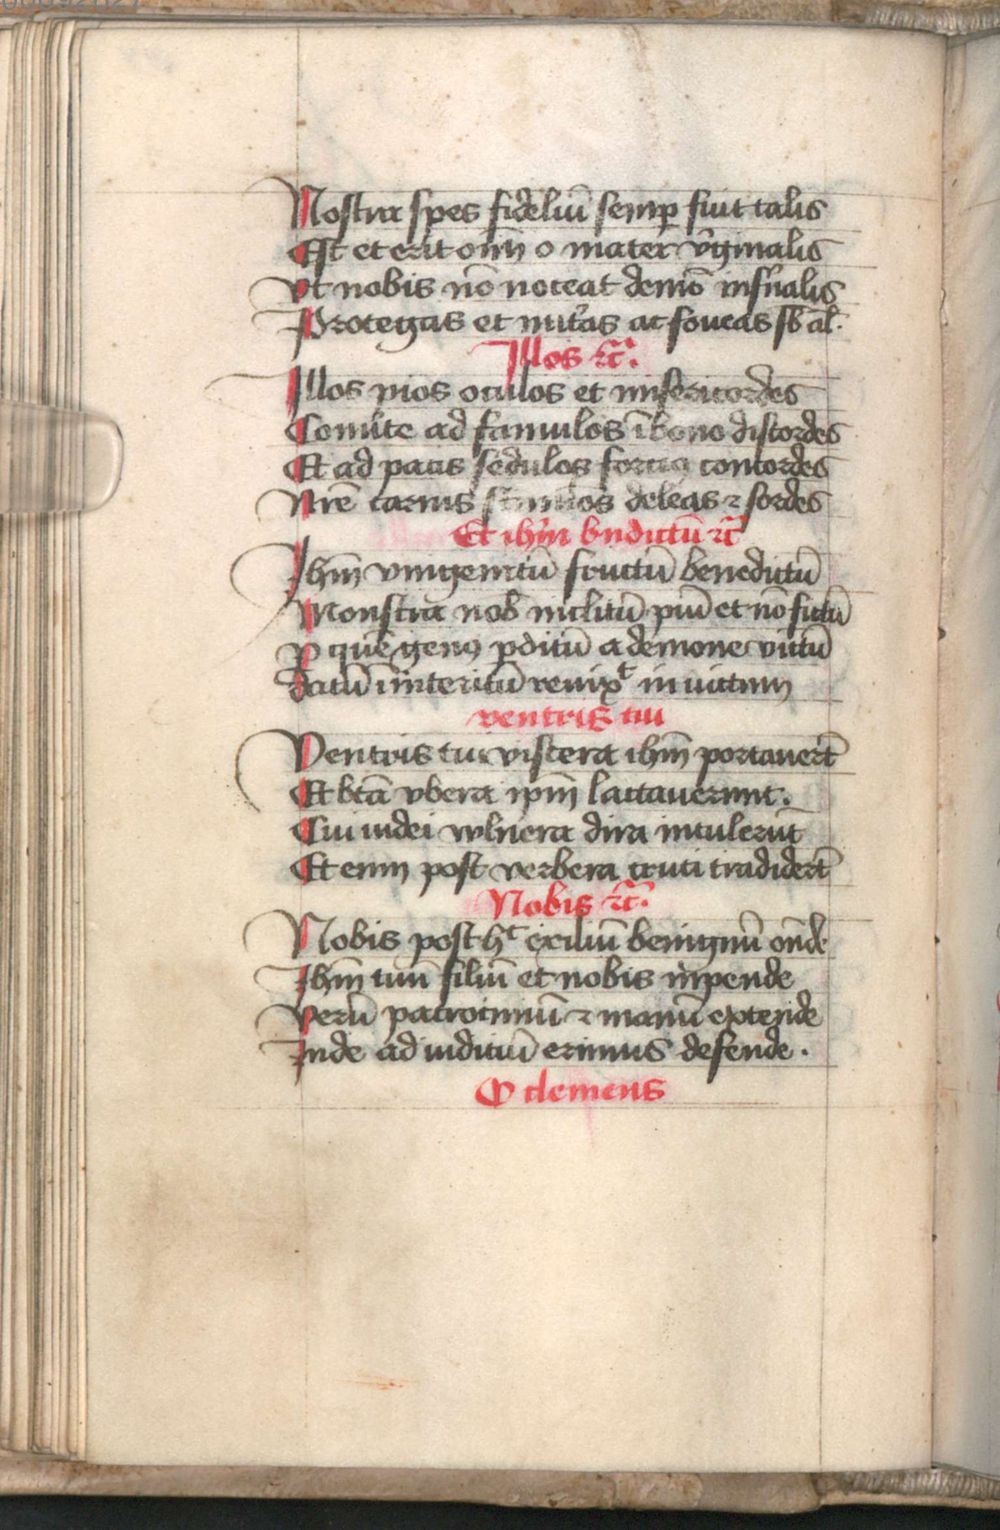 Nostra spes fideliū semp fuit talis
Est et erit om̄i o mater v̾ginalis
Vt nobis nō noceat demō inf̾nalis
Protegas et nut̾as ac foueas sb al.
Illos ⁊c̄.
Illos pios oculos et misericordes
Conu̾te ad famulos ī bono discordes
Et ad pacis sedulos concordes
Nr̄e carnis deleas ⁊ sordes
Et ihm̄ bn̄dictū ⁊c̄
Ihm̄ vnigenitū fructū benedictū
Monstra nob inclitū piū et nō fictū
ꝑ quē genꝰ ꝑditū a demone victū
datū ī interitū reuixᵗ inuictum
ventris tui
Ventris tui viscera ihm̄ portauert̄
Et btā vbera ip̄m lactauerunt.
Cui iudei vulnera dira intulerūt
Et enim post verbera cruci tradidert̄
Nobis ⁊c̄.
Nobis post hᶜ exiliū benignū on̄de
Ihm̄ tuū filiū et nobis īpende
Verū patrociniū ⁊ manū extende
Inde ad iudiciū erimus defende.
O clemens